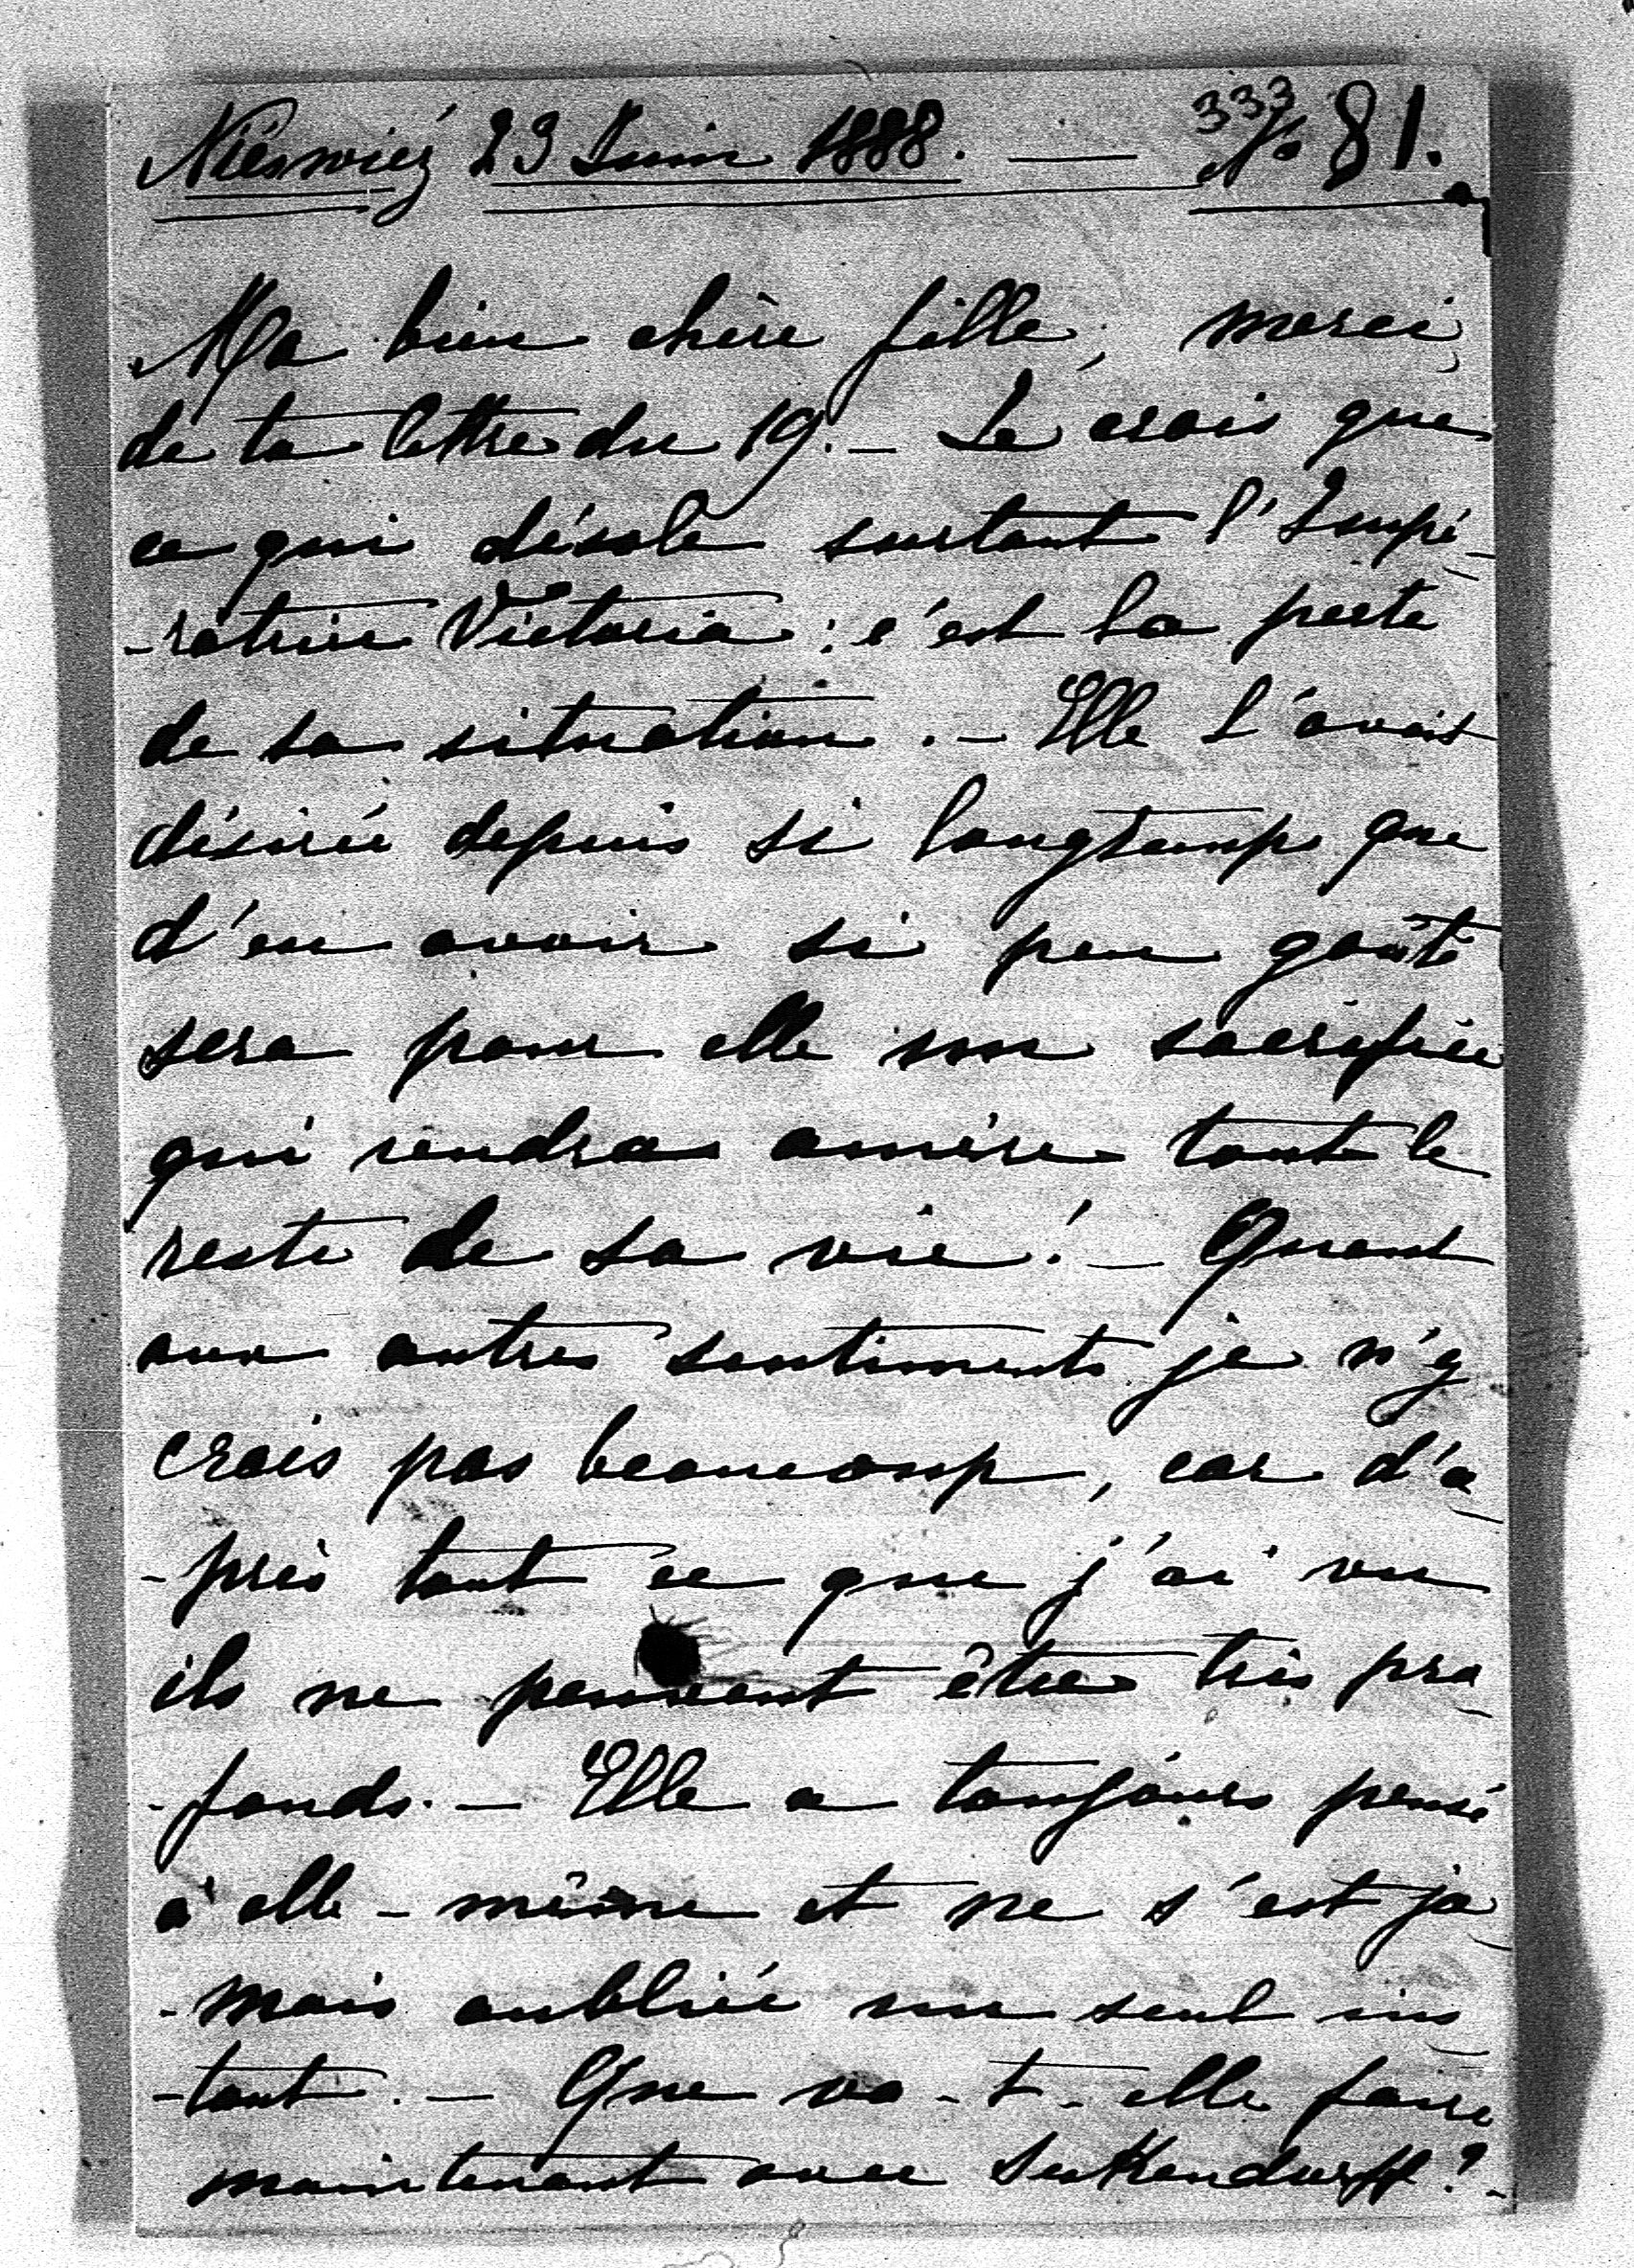 Nieswiez 23 Juin 1888. — 333 No 81.
Ma bien chère fille, merci
de ta lettre du 19. — Je crois que
ce qui désole surtout l'Impé-
-ratrice Victoria : c'est la perte
de sa situation. — Elle l'avait
désirée depuis si longtemps que
d'en avoir si peu goûté
sera pour elle un sacrifice
qui rendra amère tout le
reste de sa vie ! — Quant
aux autres sentiments je n'y
crois pas beaucoup, car d'a-
-près tout ce que j'ai vu
ils ne peuvent être très pro-
-fonds. — Elle a toujours pensé
à elle-même et ne s'est ja-
-mais oubliée un seul ins-
-tant. — Que va-t-elle faire
maintenant avec Seckendorff ? -